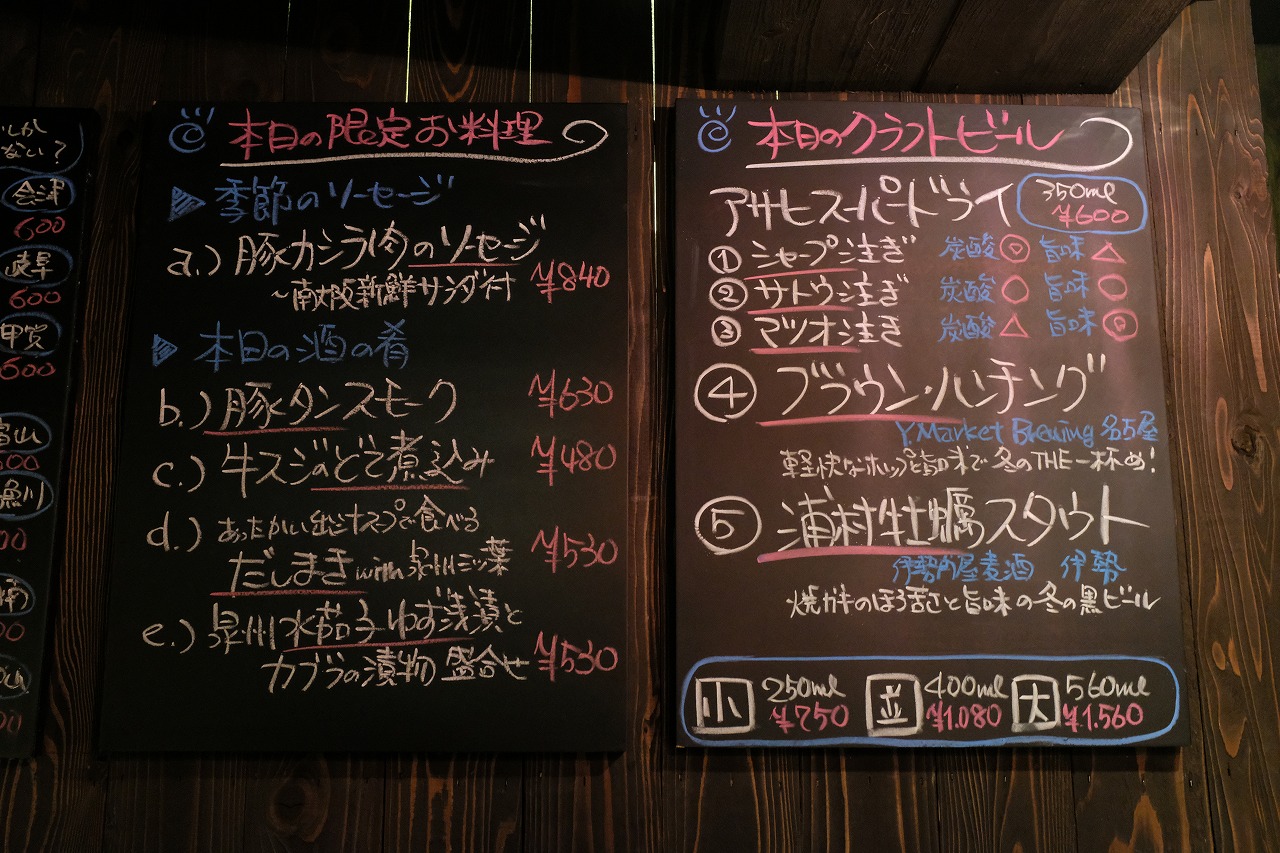 しか
ない?
会津
600
岐阜
600
甲賀
600
富山
本日の限定お料理
季節のソーセージ
a.) 豚カシラ肉のソーセージ
~南大阪新鮮サラダ付 ¥840
本日の酒の肴
b.) 豚タンスモーク ¥630
c.) 牛スジのどて煮込み ¥480
d.) あったかい出汁スープで食べる
だしまき with 泉州三ッ葉 ¥530
e.) 泉州水茄子ゆず浅漬と
カブラの漬物 盛合せ ¥530
本日のクラフトビール
アサヒスーパードライ 350ml ¥600
① シャープ注ぎ 炭酸◎ 旨味△
② サトウ注ぎ 炭酸○ 旨味○
③ マツオ注ぎ 炭酸△ 旨味◎
④ ブラウン・ハチング
Y.Market Brewing 名古屋
軽快なホップと旨味で冬のTHE一杯め!
⑤ 浦村牡蠣スタウト
伊勢角屋麦酒 伊勢
焼ガキのほろ苦さと旨味の冬の黒ビール
小 250ml ¥750 並 400ml ¥1.080 大 560ml ¥1.560